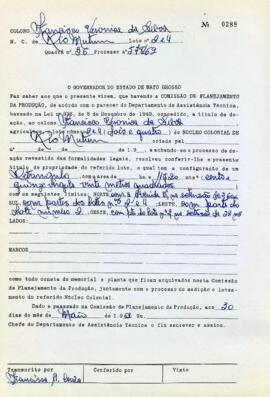 Nº 0288
COLONO Francisco Veronios da Silva
N. C. de Rio Mutum Lote nº 2 e 4
Quadra nº 25 Processo nº
O GOVERNADOR DO ESTADO DE MATO GROSSO
Faz saber aos que o presente virem, que havendo a COMISSÃO DE PLANEJAMENTO
DA PRODUÇÃO, de acordo com o parecer do Departamento de Assistência Técnica,
baseado na Lei nº 336, de 6 de Dezembro de 1949, concedido, a título de
doação, ao colono Francisco Veronios da Silva
agricultor, o lote número 2 e 4 (dois e quatro) do NÚCLEO COLONIAL DE
Rio Mutum criado pelo
nº de de de 19 e achando-se o processo de
doação revestido das formalidades legais, resolveu conferir-lhe o presente
título de propriedade do referido lote, o qual tem a configuração de um
Retangulo com a área de
quinze vinte metros quadrados
e os seguintes limites: NORTE, com
SUL, com partes dos lotes nºs 2 e 4 LESTE, com parte do
lote numero 2 OESTE, com
LADOS:
MARCOS
como tudo consta do memorial e planta que ficam arquivados nesta Comissão
de Planejamento da Produção, juntamente com o processo de medição e lotea-
mento do referido Núcleo Colonial.
Dado e passado na Comissão de Planejamento da Produção, aos 30
dias do mês de Maio de 19
Chefe do Departamento de Assistência Técnica o fiz escrever e assino.
Transcrito por
Conferido por
Visto
Francisco A.